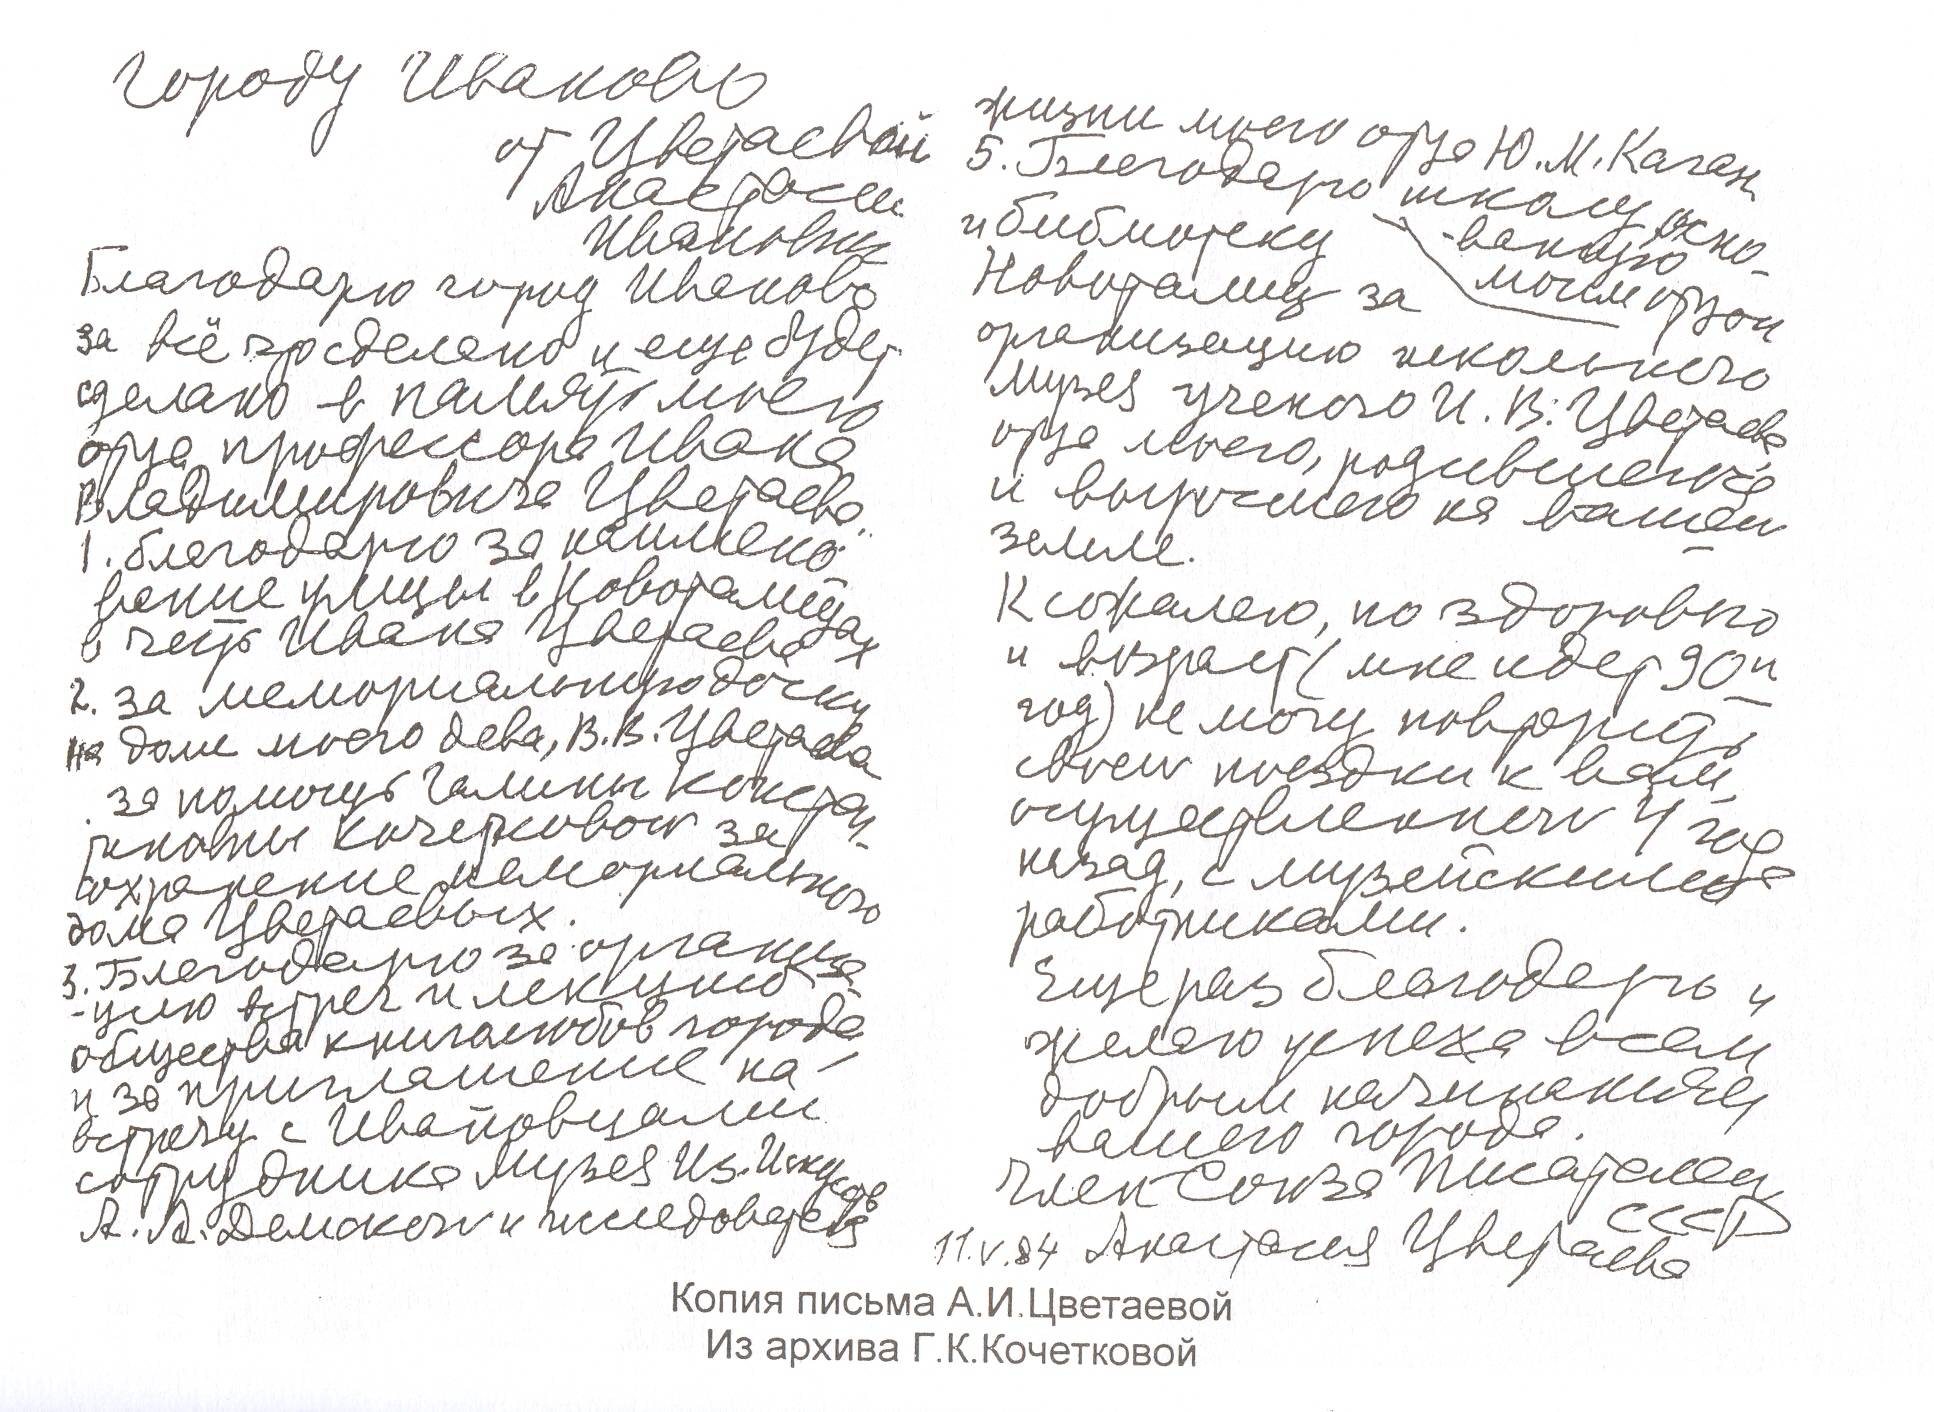 Городу Иваново
от Цветаевой
Анастасии
Ивановны
Благодарю город Иваново
за всё что сделано и еще будет
сделано в память моего
отца профессора Ивана
Владимировича Цветаева.
1. благодарю за наимено-
вание улицы в Новоталицах
в честь Ивана Цветаева
2. за мемориальную доску
на доме моего деда, В.В. Цветаева
за помощь Галины Констан-
тиновны Кочетковой за
сохранение мемориального
дома Цветаевых.
3. Благодарю за организа-
-цию встреч и лекцию
общества книголюбов города
и за приглашение на
встречу с Ивановцами
сотрудника музея Из. Искусств
А.А. Демской и исследователя
жизни моего отца Ю.М. Каган
5. Благодарю школу осно-
-ванную
моим отцом
и библиотеку
Новоталиц за
организацию школьного
музея ученого И.В. Цветаева
отца моего, родившегося
и выросшего на вашей
земле.
К сожалею, по здоровью
и возраст (мне идет 90й
год) не могу повторить
своей поездки к вам,
осуществленной 4 года
назад, с музейскими
работниками.
Еще раз благодарю и
желаю успеха всем
добрым начинаниям
вашего города.
Член Союза Писателей
СССР
11.V.84 Анастасия Цветаева
Копия письма А.И.Цветаевой
Из архива Г.К.Кочетковой